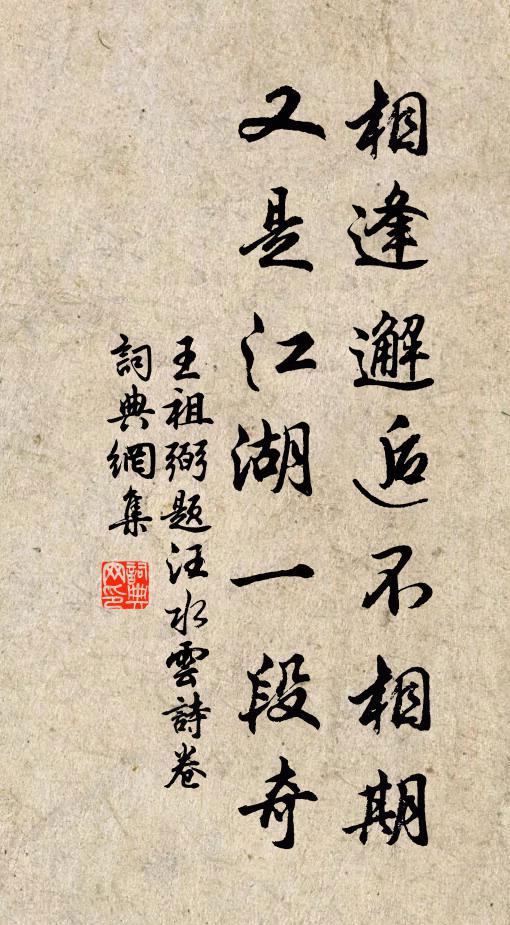 相逢邂逅不相期
又是江湖一段奇
王祖弼题汪水雲詩卷
詞典網集
詞典网印